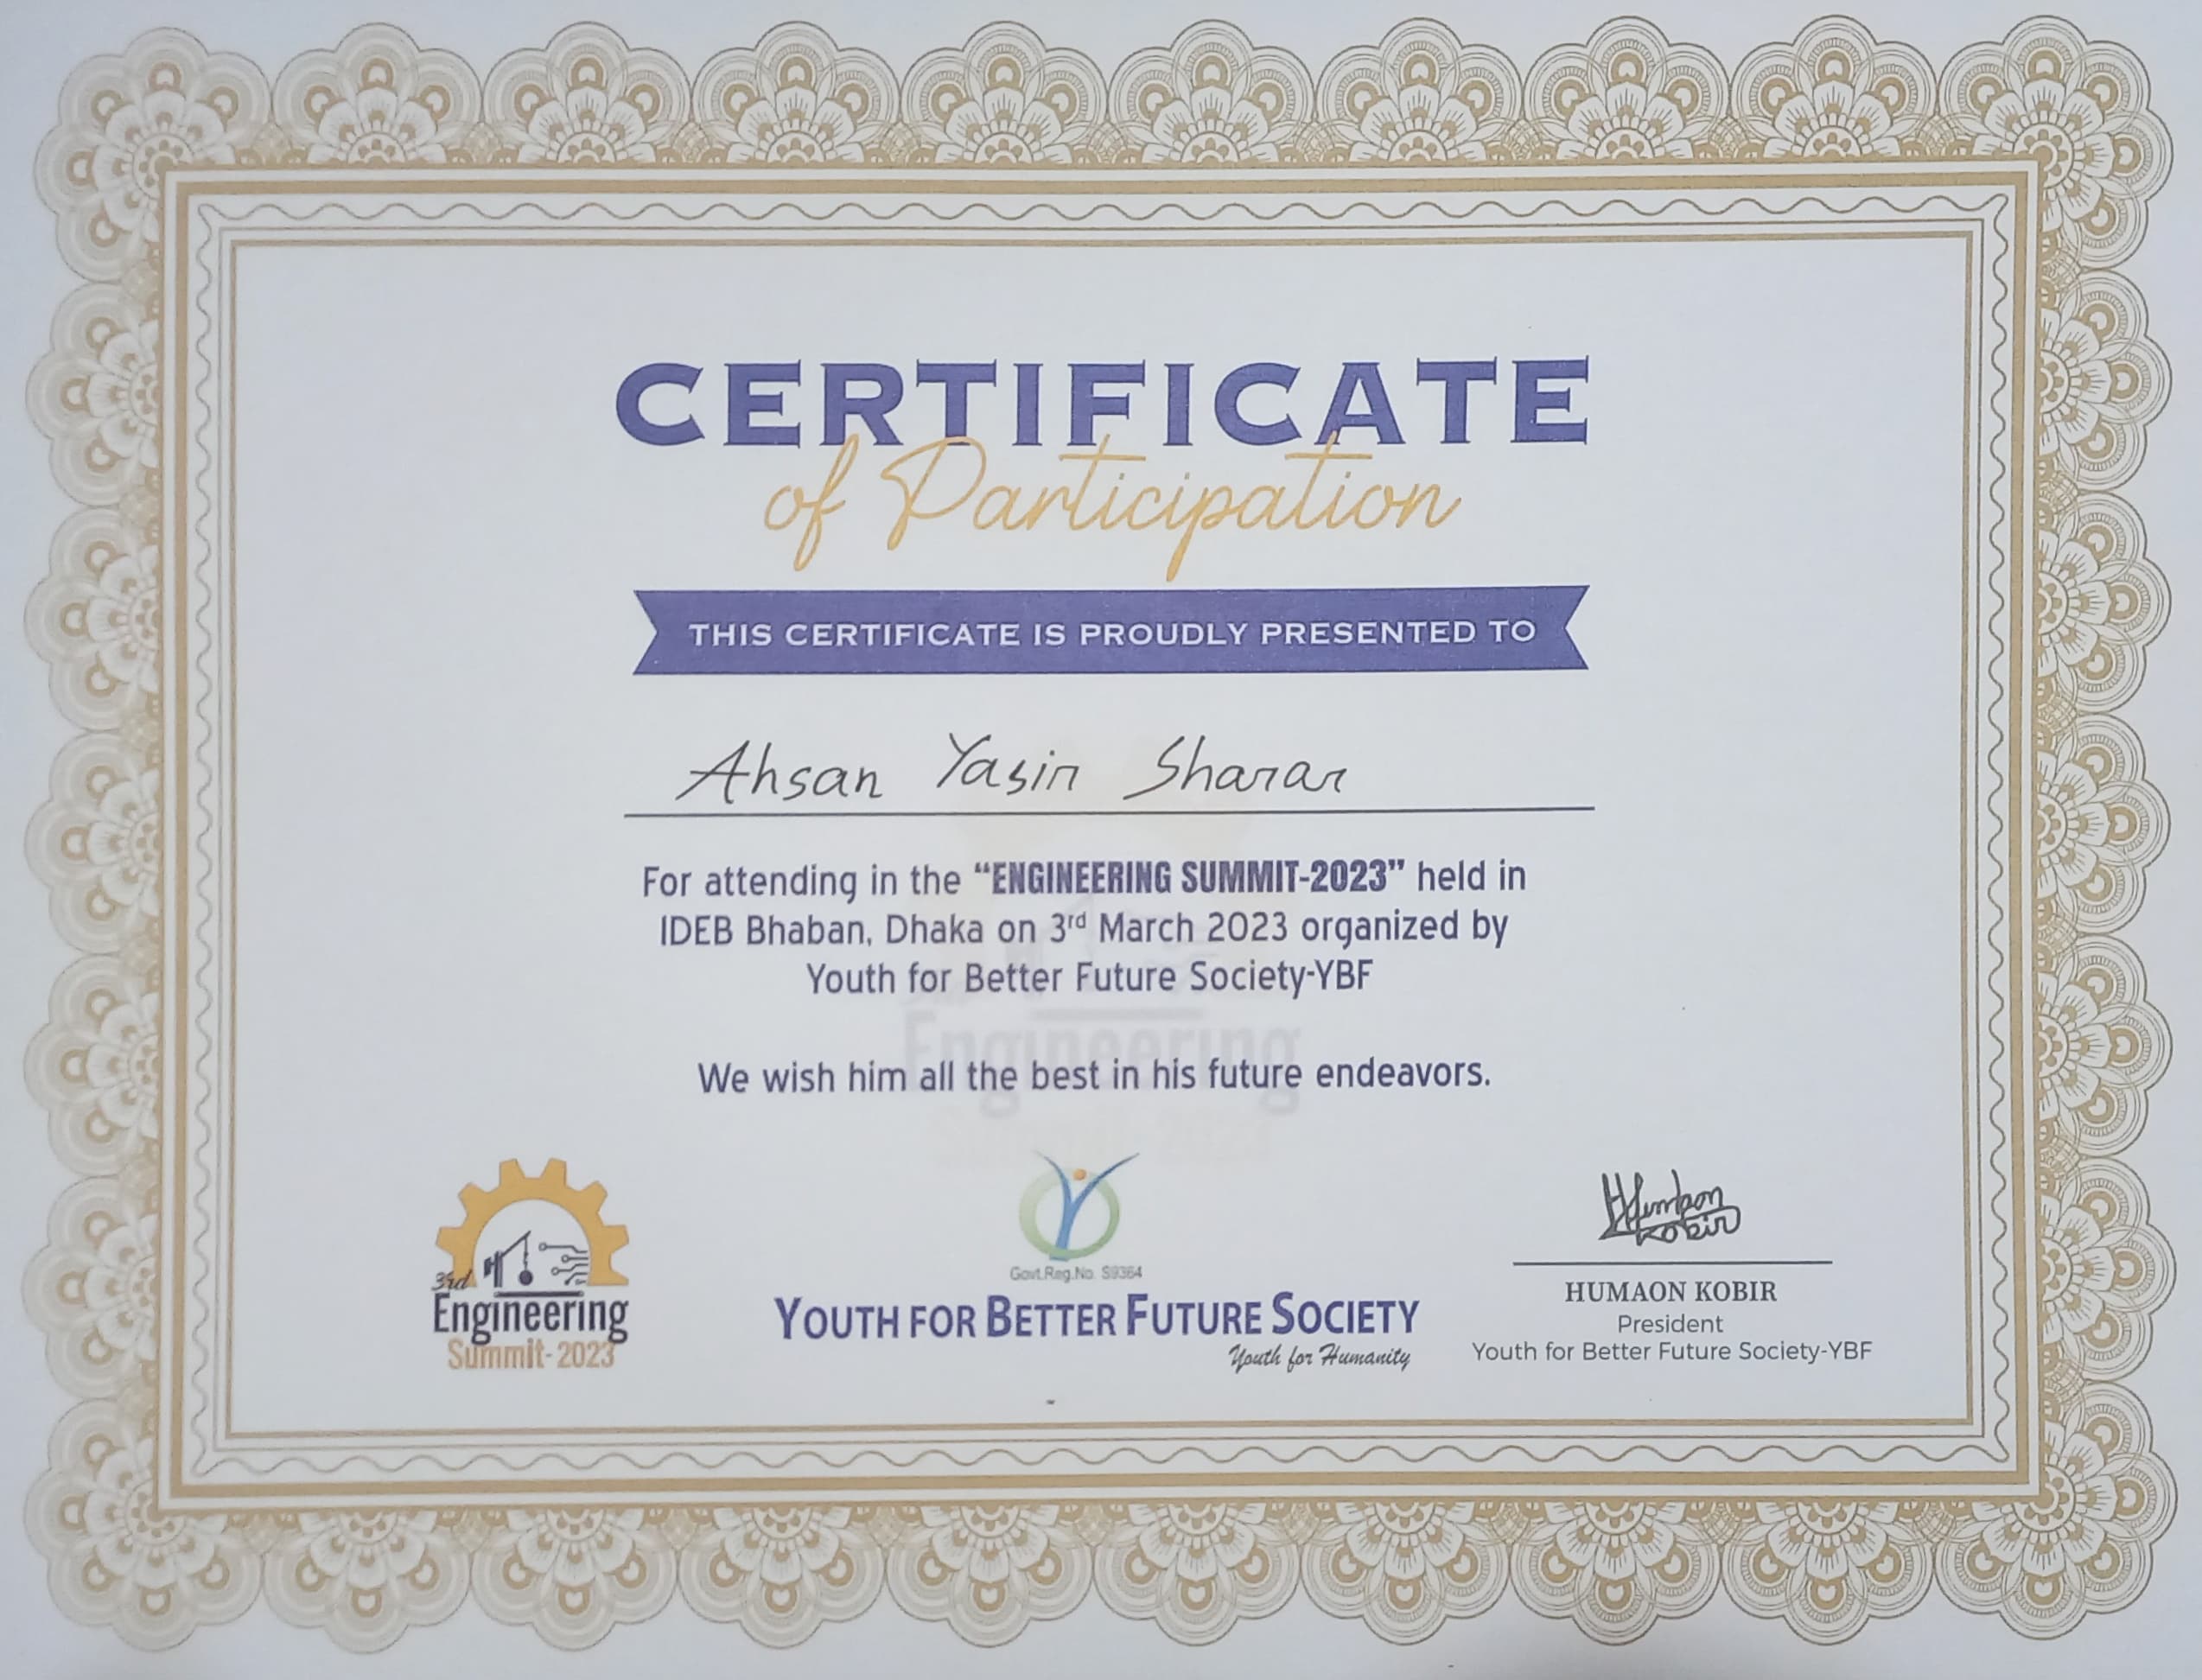 CERTIFICATE
of Participation
THIS CERTIFICATE IS PROUDLY PRESENTED TO
Ahsan Yasir Sharar
For attending in the “ENGINEERING SUMMIT-2023” held in
IDEB Bhaban, Dhaka on 3rd March 2023 organized by
Youth for Better Future Society-YBF
We wish him all the best in his future endeavors.
3rd
Engineering
Summit-2023
Govt.Reg.No. S9364
YOUTH FOR BETTER FUTURE SOCIETY
Youth for Humanity
Humaon
Kobir
HUMAON KOBIR
President
Youth for Better Future Society-YBF